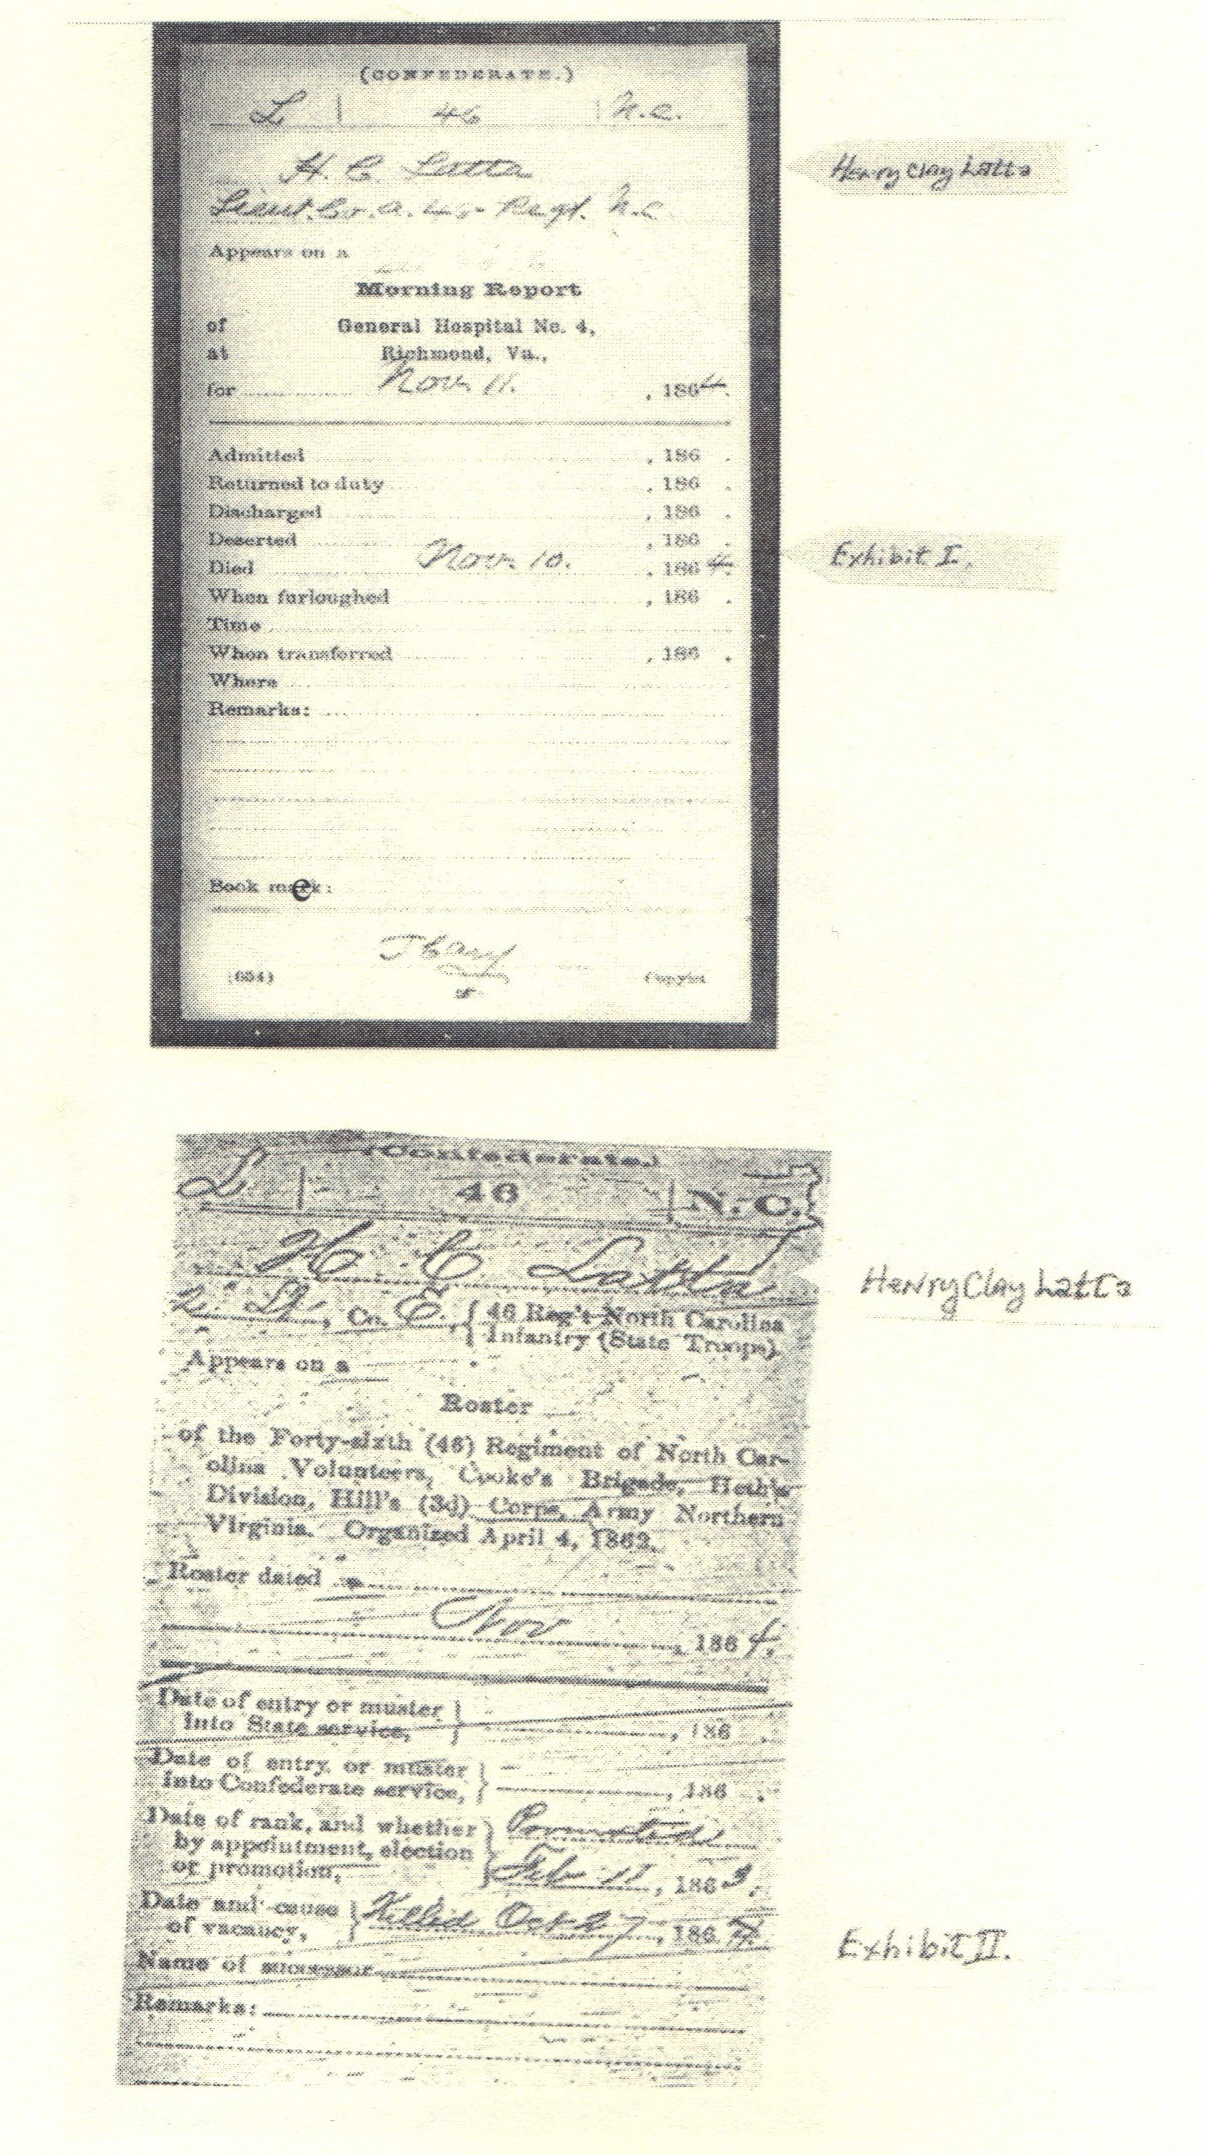 (CONFEDERATE.)
L | 46 | N.C.
H. C. Latta
Henry Clay Latta
Lieut. Co. A. 46 Regt. N.C.
Appears on a
Morning Report
of General Hospital No. 4,
at Richmond, Va.,
for Nov. 11. , 1864.
Admitted , 186 .
Returned to duty , 186 .
Discharged , 186 .
Deserted , 186 .
Died Nov. 10. , 1864.
Exhibit I.
When furloughed , 186 .
Time
When transferred , 186 .
Where
Remarks:
Book mark:
e
(654) Copyist
(Confederate.)
L | 46 | N. C.
H C Latta
Henry Clay Latta
2 Lt, Co. E, { 46 Reg't North Carolina
Infantry (State Troops).
Appears on a
Roster
of the Forty-sixth (46) Regiment of North Car-
olina Volunteers, Cooke's Brigade, Heth's
Division, Hill's (3d) Corps, Army Northern
Virginia. Organized April 4, 1862.
Roster dated
Nov , 1864.
Date of entry or muster }
into State service, , 186 .
Date of entry or muster }
into Confederate service, , 186 .
Date of rank, and whether } Promoted
by appointment, election
or promotion, Feb 11 , 1863.
Date and cause } Killed Oct 27 , 1864.
of vacancy,
Exhibit II.
Name of successor
Remarks: